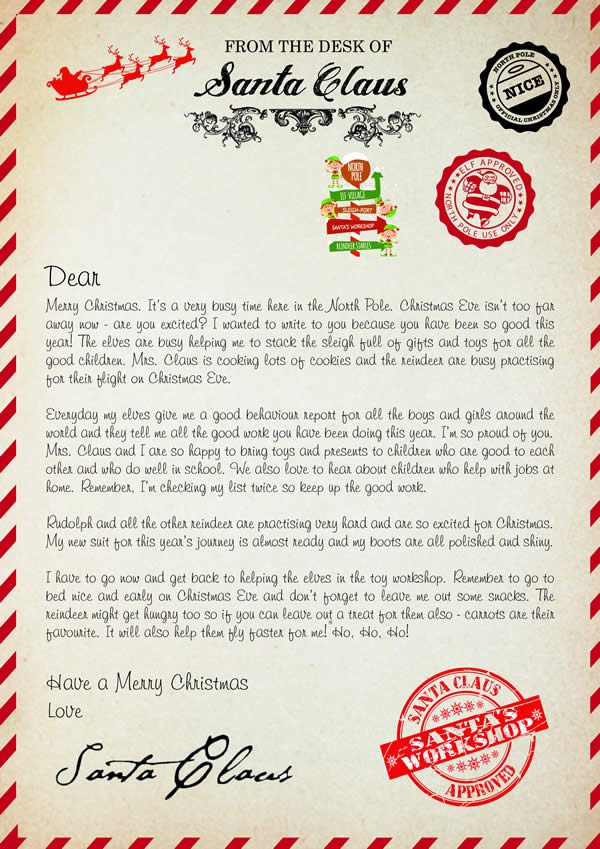 FROM THE DESK OF
Santa Claus
NORTH POLE
NICE
OFFICIAL CHRISTMAS ONLY
NORTH
POLE
ELF VILLAGE
SLEIGH-PORT
SANTA'S WORKSHOP
REINDEER STABLES
ELF APPROVED
NORTH POLE USE ONLY
Dear
Merry Christmas. It's a very busy time here in the North Pole. Christmas Eve isn't too far
away now - are you excited? I wanted to write to you because you have been so good this
year! The elves are busy helping me to stack the sleigh full of gifts and toys for all the
good children. Mrs. Claus is cooking lots of cookies and the reindeer are busy practising
for their flight on Christmas Eve.
Everyday my elves give me a good behaviour report for all the boys and girls around the
world and they tell me all the good work you have been doing this year. I'm so proud of you.
Mrs. Claus and I are so happy to bring toys and presents to children who are good to each
other and who do well in school. We also love to hear about children who help with jobs at
home. Remember, I'm checking my list twice so keep up the good work.
Rudolph and all the other reindeer are practising very hard and are so excited for Christmas.
My new suit for this year's journey is almost ready and my boots are all polished and shiny.
I have to go now and get back to helping the elves in the toy workshop. Remember to go to
bed nice and early on Christmas Eve and don't forget to leave me out some snacks. The
reindeer might get hungry too so if you can leave out a treat for them also - carrots are their
favourite. It will also help them fly faster for me! Ho, Ho, Ho!
Have a Merry Christmas
Love
Santa Claus
SANTA CLAUS
SANTA'S
WORKSHOP
APPROVED